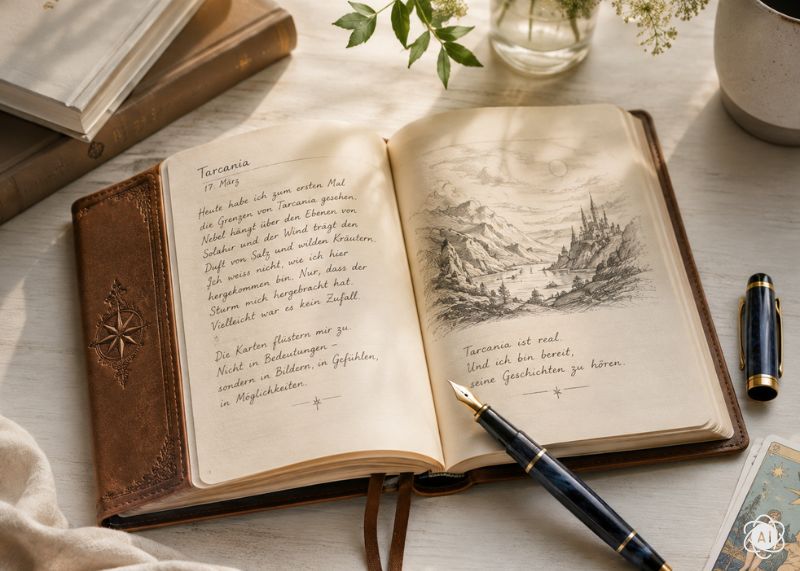 Tarcania
17. März
Heute habe ich zum ersten Mal
die Grenzen von Tarcania gesehen.
Nebel hängt über den Ebenen von
Solahur und der Wind trägt den
Duft von Salz und wilden Kräutern.
Ich weiss nicht, wie ich hier
hergekommen bin. Nur, dass der
Sturm mich hergebracht hat.
Vielleicht war es kein Zufall.
Die Karten flüstern mir zu.
Nicht in Bedeutungen –
sondern in Bildern, in Gefühlen,
in Möglichkeiten.
Tarcania ist real.
Und ich bin bereit,
seine Geschichten zu hören.
AI